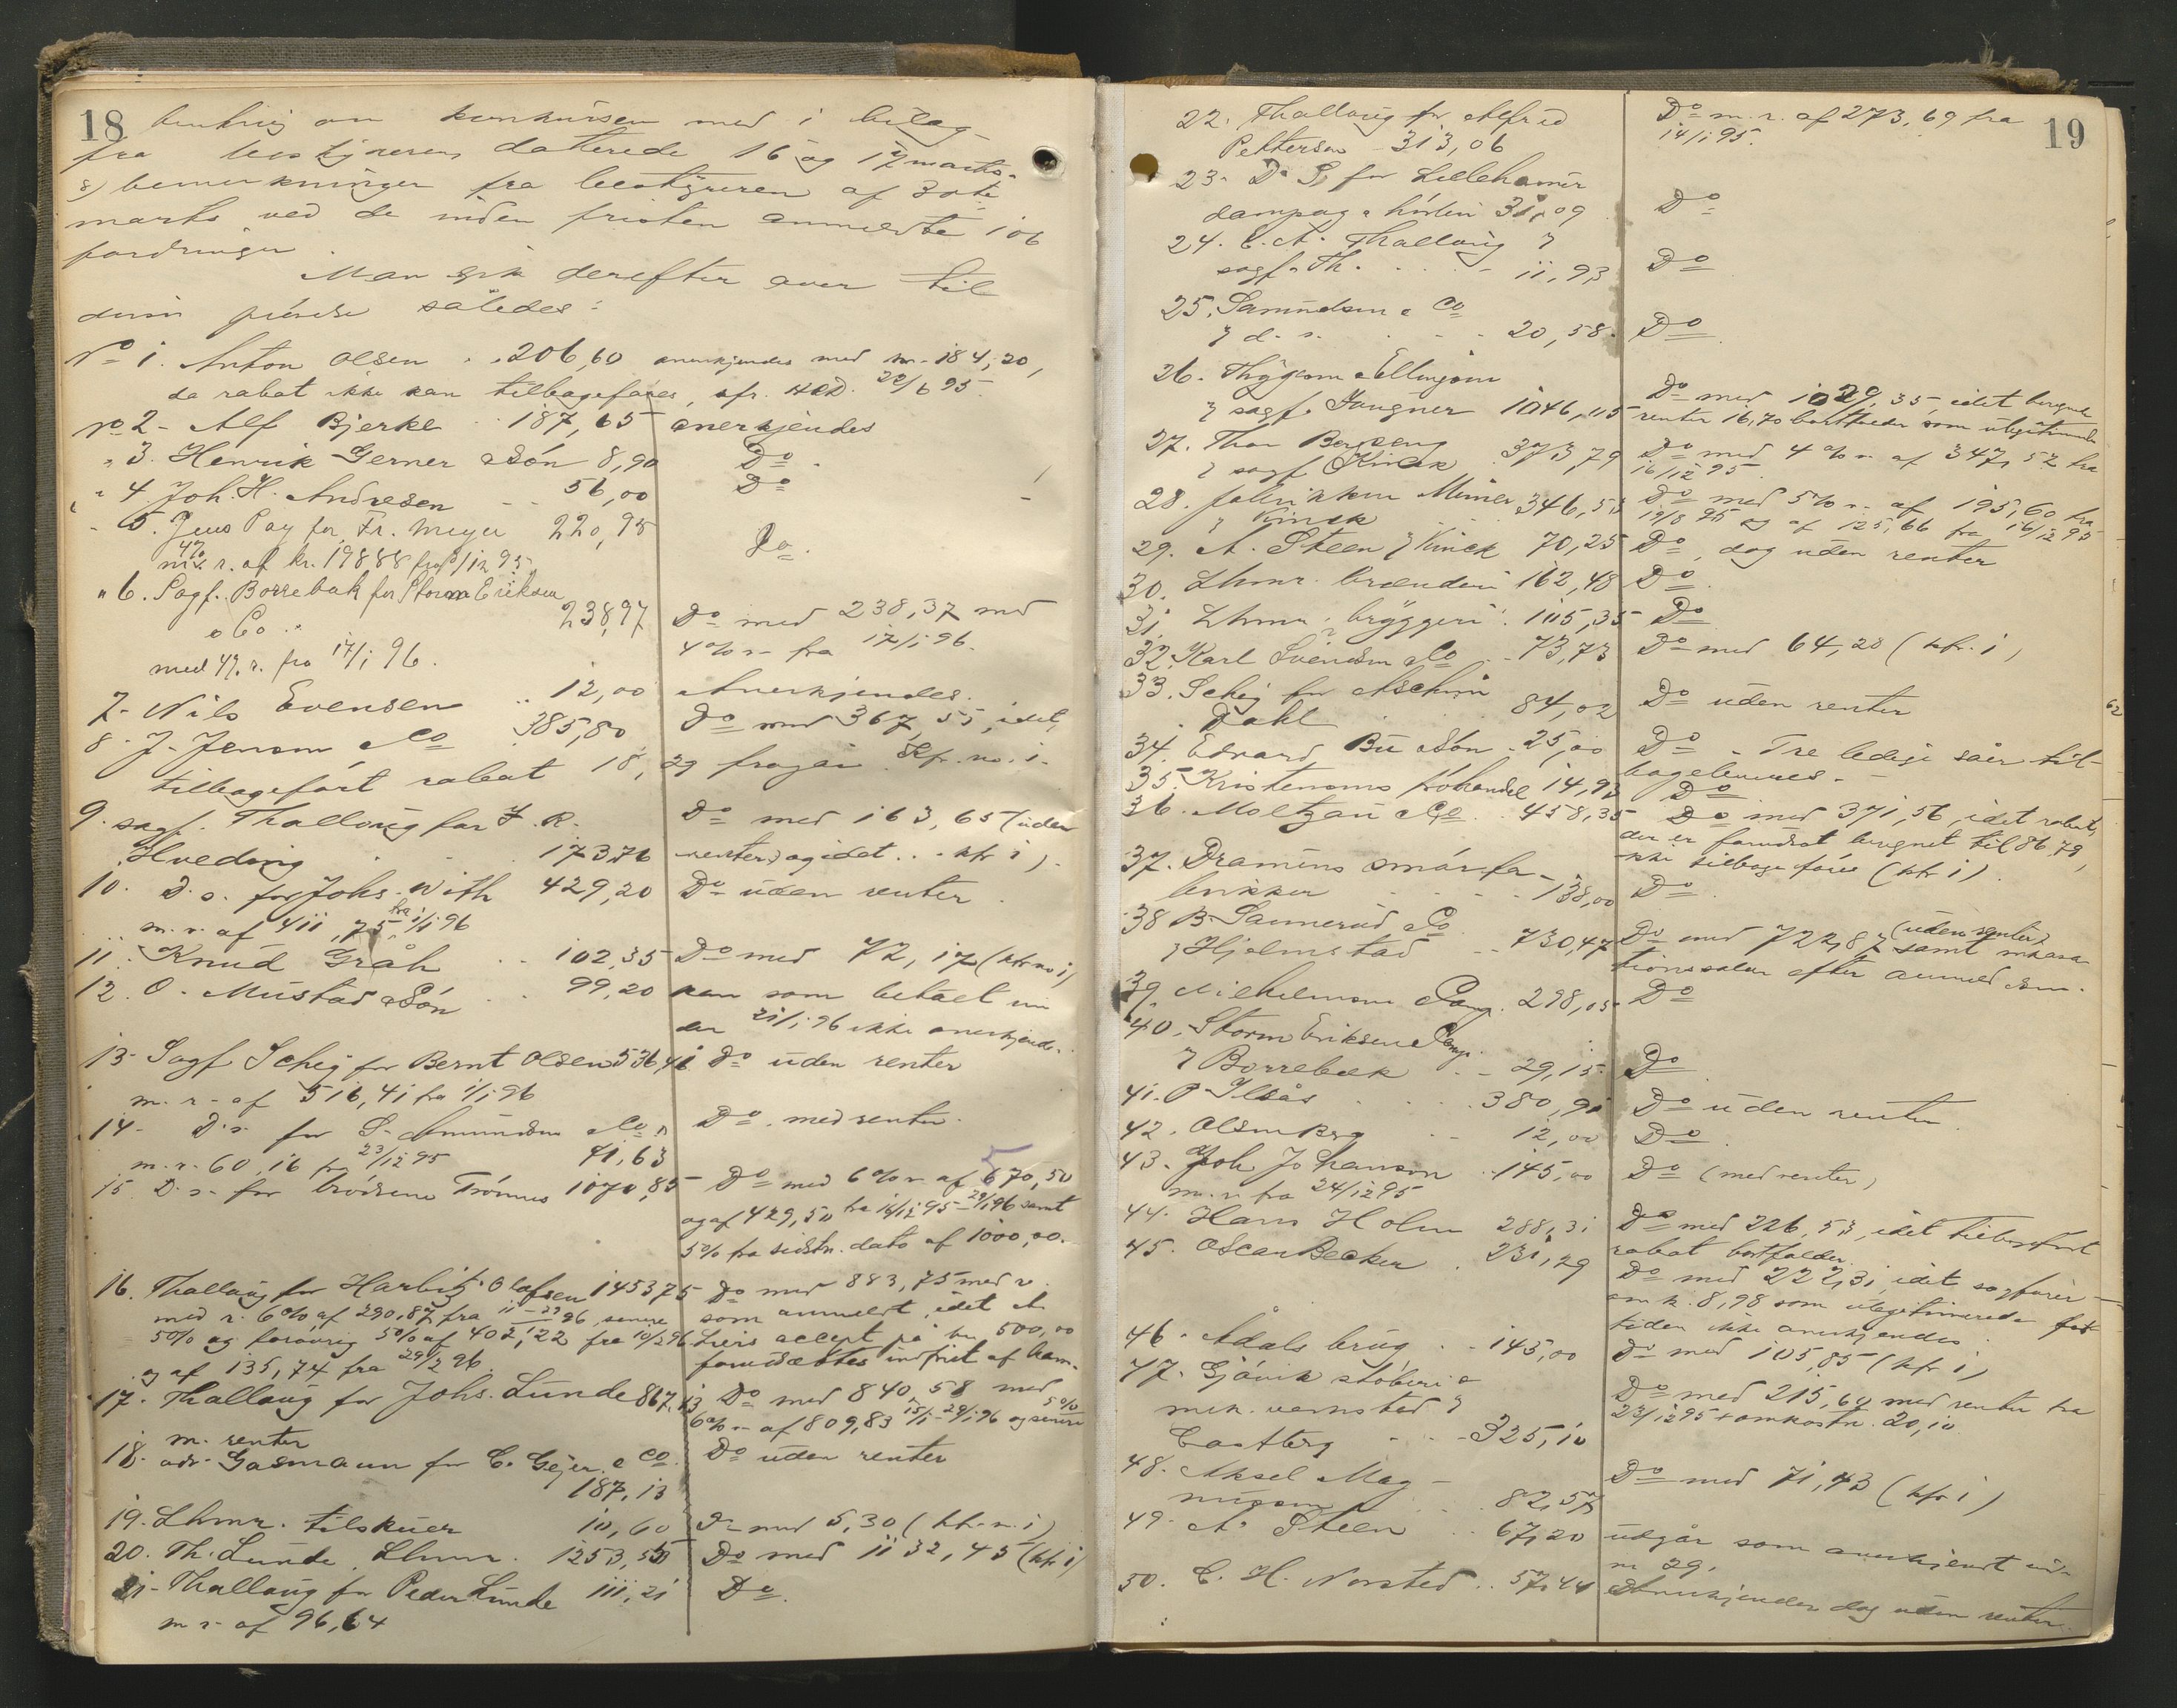 18
om konkursen med i bilag
fra bestyreren daterede 16 og 17 marts.
8) bemerkninger fra bestyreren af 30te
marts ved de inden fristen anmeldte 106
fordringer.
Man gik derefter over til
disses prøvelse således:
No 1. Anton Olsen . . 206,60 anerkjendes med kr. 184,20,
da rabat ikke kan tilbageføres, cfr. HRD. 22/6 95.
No 2 - Alf Bjerke . . 187,65 anerkjendes
" 3. Henrik Gerner & Søn 8,90 Do.
" 4. Joh. H. Andresen - - 56,00 Do
" 5. Jens Pay for Fr. Meyer 220,95 Do.
m. 4% r. af kr. 198 88 fra /12 95
" 6. Sagf. Borrebæk for Storm Eriksen
& Co . . 238,97 Do med 238,37 med
med 4% r. fra 17/1 96. 4% r. fra 17/1 96.
7. Nils Evensen . . 12,00 Anerkjendes.
8. J. Jenssen & Co 385,80 Do med 367,55, idet
tilbageført rabat 18,29 fragår. Kfr. no. 1.
9. sagf. Thallaug for F. R. Do med 163,65 (uden
Hveding . . 173,76 renter) og idet . . . kfr 1).
10. D. s. for Johs. With 429,20 Do uden renter
m. r. af 411,75 fra 1/1 96
11. Knud Gråh . . 102,35 Do med 72,17 (kfr no 1)
12. O. Mustad & Søn . . 99,20 kan som betalt
den 21/1 96 ikke anerkjendes.
13. Sagf Scheig for Bernt Olsen 536,41 Do uden renter
m. r. af 516,41 fra 1/1 96
14. D. s. for S. Amundsen & Co Do. med renter.
m. r. 60,16 fra 23/12 95 71,63
15. D. s. for brødrene Trønnes 1070,85 Do med 6% r. af 570,50
og af 429,50 fra 14/12 95 - 29/1 96 samt
5% fra sidstn. dato af 1000,00.
16. Thallaug for Harbitz Olafsen 1453 75 Do med 883,75 med r.
med r. 6% af 290,87 fra 11 - 29 96, senere som anmeldt, idet A.
5% og forøvrig 5% af 402,22 fra 10/2 96 Liers accept på kr. 500,00
og af 135,74 fra 29/2 96. forudsættes indfriet af ham.
17. Thallaug for Johs. Lunde 867,13 Do med 840,58 med
m. renter 6% r. af 809,83 15/1 - 29/1 96 og senere 5%
18. adv. Gasmann for C. Gejer & Co. Do uden renter
187,13
19. Lhmr. tilskuer 10,60 Do med 5,30 (kfr. n. 1)
20. Th. Lunde. Lhmr. 1253,50 Do med 1132,45 (kfr 1)
21. Thallaug for Peder Lunde 111,21 Do.
m r. af 96,64
19
22. Thallaug for Alfred Do m. r. af 273,69 fra
Petterson - 313,06 14/1 95.
23. D. S. for Lillehamer
dampsag & høvleri 31,09 Do
24. C. A. Thallaug v
sagf. Th. . . . - 11,93 Do
25. Samuelsen & Co
v d. s. . . - - 20,58. Do.
26. Thygesen & Ellingsen Do med 1029,35, idet beregnede
v sagf. Gaugner 1046,05 renter 16,70 bortfalder som ulegitimerede
27. Thor Bergseng Do med 4% r. af 347,52 fra
v sagf. Kinck . 373,79 16/12 95.
28. fabrikken Minér 346,53 Do med 5% r. af 195,60 fra
v Kinck 19/8 95 og af 125,66 fra 16/12 95
29. A. Steen v Kinck 70,25 Do, dog uden renter
30. Lhmr. brænderi 162,48 Do.
31. Lhmr. bryggeri . 105,35 Do
32. Karl Svendsen & Co . . 73,73 Do med 64,20 (kfr. 1)
33. Scheig for Aschim
Dahl . . . 84,02 Do uden renter
34. Edvard Bu & Søn . 25,00 Do. Tre ledige såer til-
bageleveres.
35. Kristensens frøhandel 14,93 Do
36. Moltzau & Co . . 458,35 Do med 371,56, idet rabat,
der er forudsat beregnet til 86,79,
ikke tilbageføres (kfr 1).
37. Dramens smør-fa-
brikker . . . 138,00 Do.
38 B. Sannerud & Co Do med 722,87 (uden renter) samt inkassa-
v Hjelmstad . . 730,47 tionssalær efter anmeldelsen.
39. Wilhelmsen & Comp. 298,05 Do
40. Storm Eriksen & Comp.
v Borrebæk . . 29,15. Do
41. P. Ilsås . . . 380,90 Do uden renter.
42. Olsen Berg . . 12,00 Do.
43. Joh Johanson . . 145,00 Do (med renter)
m. r. fra 24/12 95
44. Hans Holm 288,31 Do med 226,53, idet tilbageført
rabat bortfalder
45. Oscar Becker . 231,29 Do med 222,31, idet sagfører-
om k. 8,98 som ulegitimerede for
tiden ikke anerkjendes.
46. Ådals brug . . 145,00 Do med 105,85 (kfr 1)
47. Gjøvik støberi & Do med 215,60 med renter fra
mek. værksted v 23/12 95 + omkostn. 20,10
Castberg . . . 325,10
48. Aksel Mag-
nussen . . . 82,57 Do med 71,43 (kfr 1)
49. A. Steen . . 67,20 udgår som anerkjendt under
nr 29.
50. C. H. Norsted . . 57,44 Anerkjendes dog uden renter.